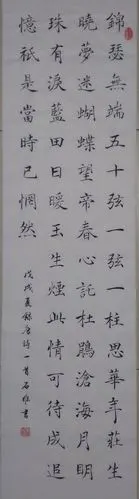 錦瑟無端五十弦一弦一柱思華年莊生
曉夢迷蝴蝶望帝春心託杜鵑滄海月明
珠有淚藍田日暖玉生煙此情可待成追
憶祇是當時已惘然
戊戌夏錄唐詩一首石書